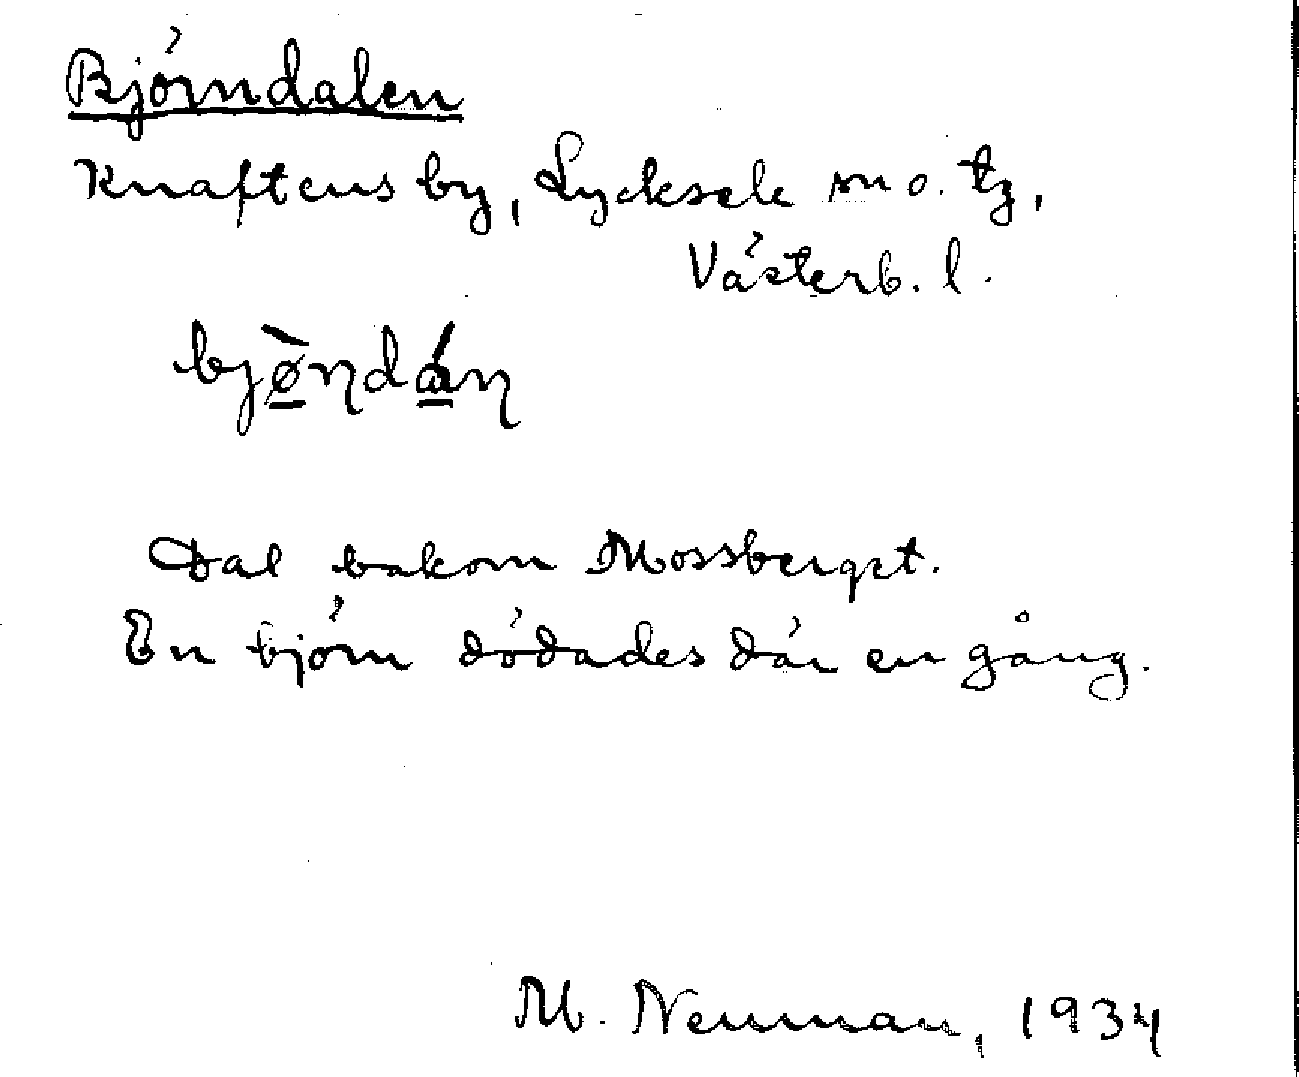 Björndalen
Knaftens by, Lycksele sn o. tg,
Västerb. l.
bjø̱̀ɳdá̱ɳ
Dal bakom Mossberget.
En björn dödades där en gång.
M. Neuman, 1934